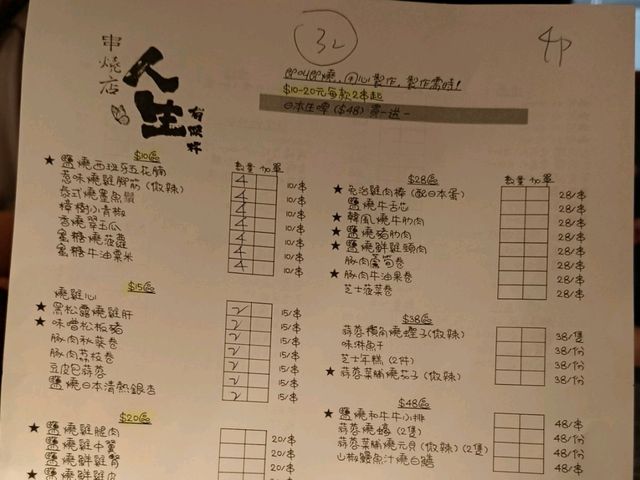 32
4p
串燒店
人生
有串燒
即叫即燒，用心製作，製作需時！
$10-20元每款2串起
日本生啤 ($48) 買一送一
$10區
數量 加單
★ 鹽燒西班牙五花腩 4 10/串
惹味燒雞腳筋 (微辣) 4 10/串
泰式燒墨魚鬚 4 10/串
樟樹小青椒 4 10/串
香燒翠玉瓜 4 10/串
蜜糖燒菠蘿 4 10/串
蜜糖牛油粟米 4 10/串
$15區
燒雞心 2 15/串
★ 黑松露燒雞肝 2 15/串
★ 味噌松板豬 2 15/串
豚肉秋葵卷 2 15/串
豚肉荔枝卷 2 15/串
豆皮包蒜蓉 2 15/串
鹽燒日本清熱銀杏 2 15/串
$20區
★ 鹽燒雞腿肉 20/串
鹽燒雞中翼 20/串
鹽燒鮮雞腎 20/串
★ 鹽燒鮮雞皮
$28區
數量 加單
★ 免治雞肉棒 (配日本蛋) 28/串
鹽燒牛舌芯 28/串
★ 韓風燒牛肋肉 28/串
★ 鹽燒豬肋肉 28/串
★ 鹽燒鮮雞頸肉 28/串
豚肉蘆筍卷 28/串
★ 豚肉牛油果卷 28/串
芝士菠菜卷 28/串
$38區
蒜蓉橫角燒蟶子 (微辣) 38/隻
味淋魚干 38/份
芝士年糕 (2件) 38/份
★ 蒜蓉菜脯燒茄子 (微辣) 38/份
$48區
★ 鹽燒和牛牛小排 48/串
蒜蓉燒蠔 (2隻) 48/份
蒜蓉菜脯燒元貝 (微辣) (2隻) 48/份
山椒鰻魚汁燒白鱔 48/串